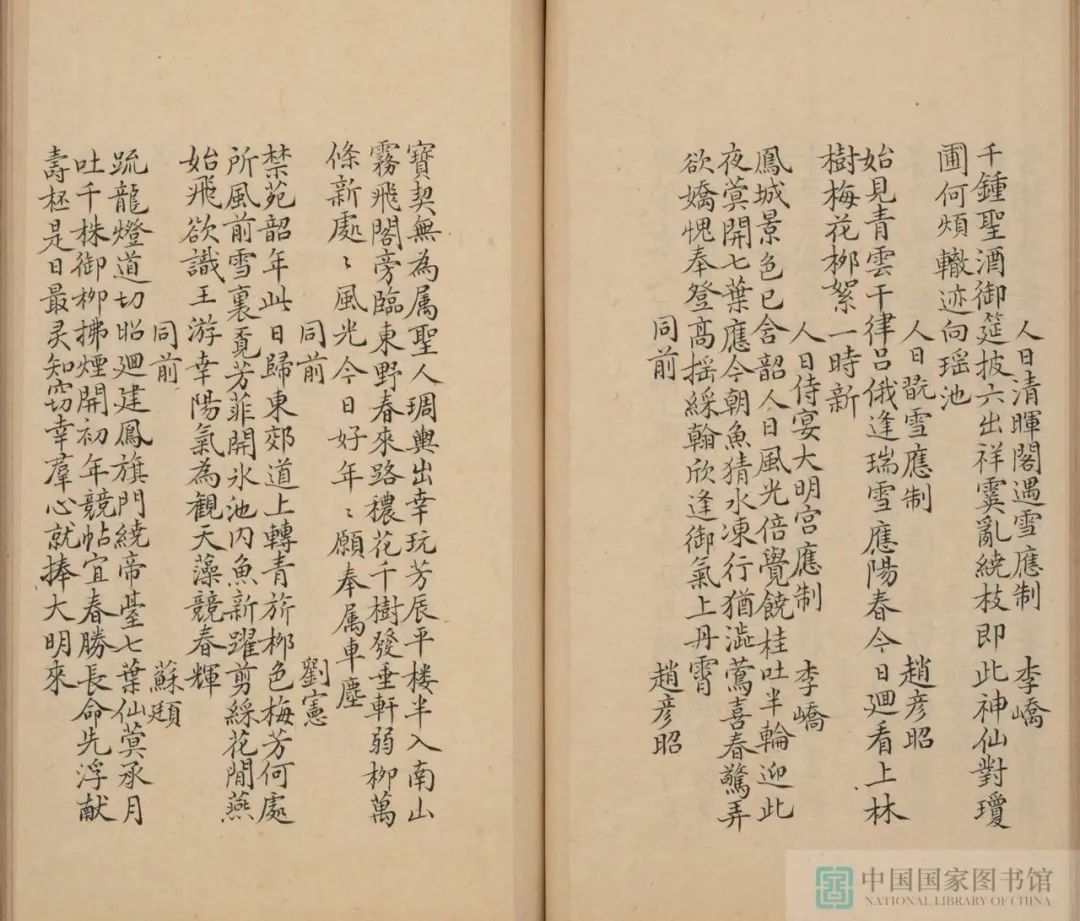 人日清暉閣遇雪應制 李嶠
千鍾聖酒御筵披六出祥霙亂繞枝即此神仙對瓊
圃何煩轍迹向瑶池
人日翫雪應制 趙彦昭
始見青雲干律呂俄逢瑞雪應陽春今日廻看上林
樹梅花柳絮一時新
人日侍宴大明宮應制 李嶠
鳳城景色已含韶人日風光倍覺饒桂吐半輪迎此
夜蓂開七葉應今朝魚猜水凍行猶澁鶯喜春驚弄
欲嬌愧奉登髙揺綵翰欣逢御氣上丹霄
同前 趙彦昭
寶契無為属聖人琱輿出幸玩芳辰平楼半入南山
霧飛閣旁臨東野春來路穠花千樹發垂軒弱柳萬
條新處〻風光今日好年〻願奉属車塵
同前 劉憲
禁苑韶年此日歸東郊道上轉青旂柳色梅芳何處
所風前雪裏覔芳菲開氷池内魚新躍剪綵花間燕
始飛欲識王游幸陽氣為觀天藻競春輝
同前 蘇頲
䟽龍燈道切昭廻建鳳旗門繞帝臺七葉仙蓂承月
吐千株御柳拂煙開初年競帖宜春勝長命先浮献
壽柸是日最灵知窃幸羣心就捧大明來
中国国家图书馆
NATIONAL LIBRARY OF CHINA